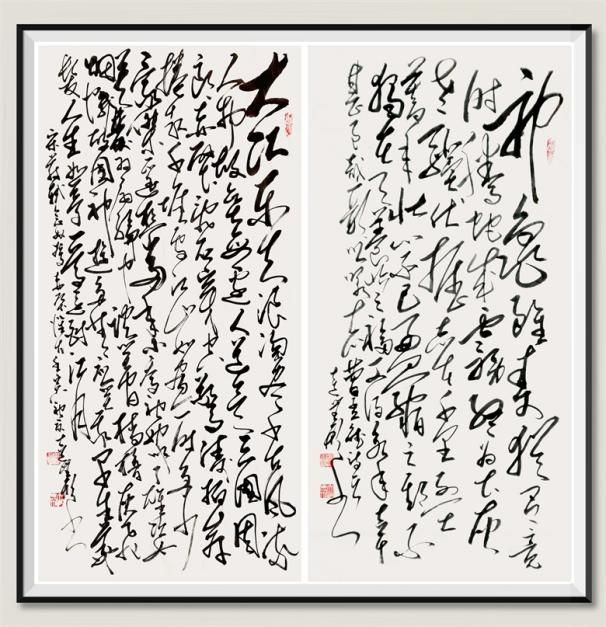 神龜雖壽猶有竟
时騰蛇成雾終为土灰
老驥伏櫪志在千里烈士
暮年壮心不已盈縮之期不
獨在天養怡之福可得永年幸
甚至哉歌以咏志
大江东去浪淘尽千古风流
人物故垒西边人道是三国周
郎赤壁乱石穿空惊涛拍岸
捲起千堆雪江山如画一时多少
豪杰遥想公瑾当年小乔初嫁了雄姿英
发羽扇纶巾谈笑间樯橹灰飞
烟灭故国神遊多情应笑我早生華
髪人生如梦一尊还酹江月
宋苏轼念奴娇赤壁懷古